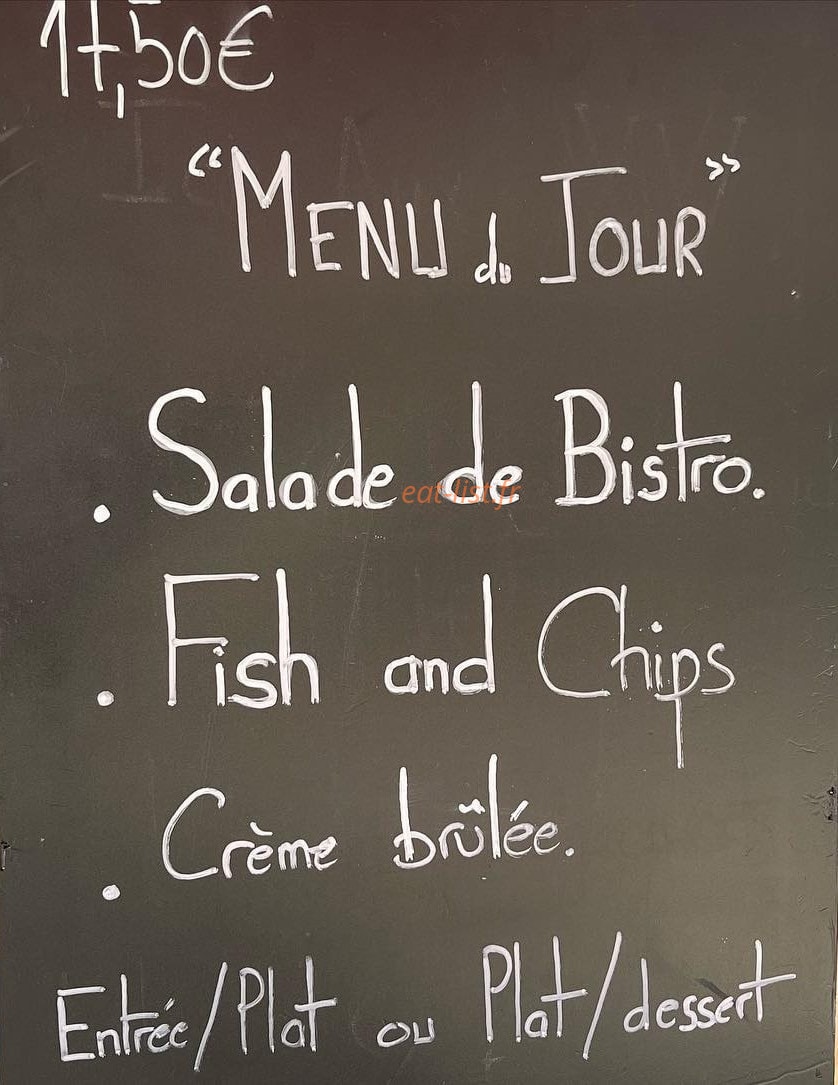 17,50€
“MENU du JOUR”
. Salade de Bistro.
eat-list.fr
. Fish and Chips
. Crème brûlée.
Entrée/Plat ou Plat/dessert